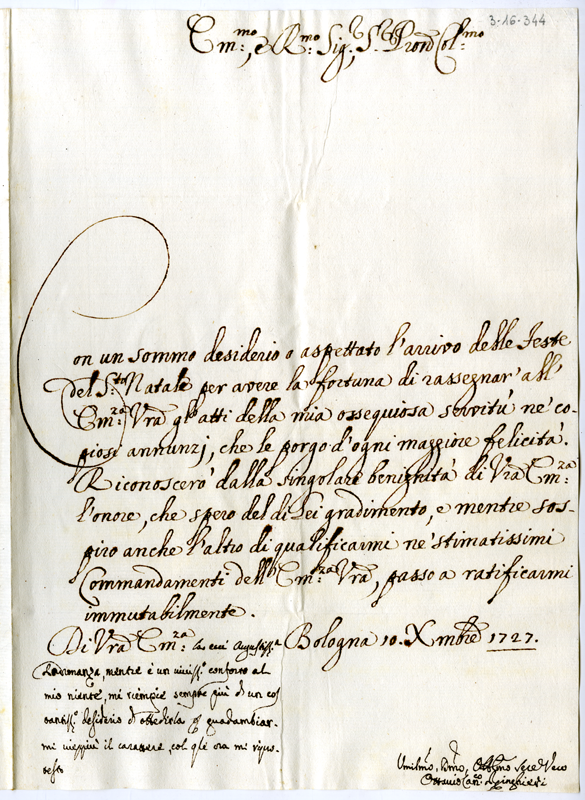 3-16-344
Em:mo, e R:mo Sig:r, S:r Pron Col:mo
Con un sommo desiderio o aspettato l'arrivo delle Feste
del S:to Natale per avere la fortuna di rassegnar' all'
Em:za Vrã gl'atti della mia ossequiosa servitù ne' co-
piosi annunzj, che le porgo d'ogni maggiore felicità.
Riconoscerò dalla singolare benignità di Vrã Em:za
l'onore, che spero del di Lei gradimento, e mentre sos-
piro anche l'altro di qualificarmi ne' stimatissimi
Commandamenti dell'Em:za Vrã, passo a ratificarmi
immutabilmente.
Di Vrã Em:za la cui Augustiss:a Bologna 10. Xmbre 1727.
mentre è un viviss:o conforto al
mio niente, mi riempie sempre più di un cos
tantiss:o desiderio di obbedirla
mi vieppiù il carattere, col qle ora mi
Umilmo, Dmo, Obbgmo Sre Vero
Ottavio Can: